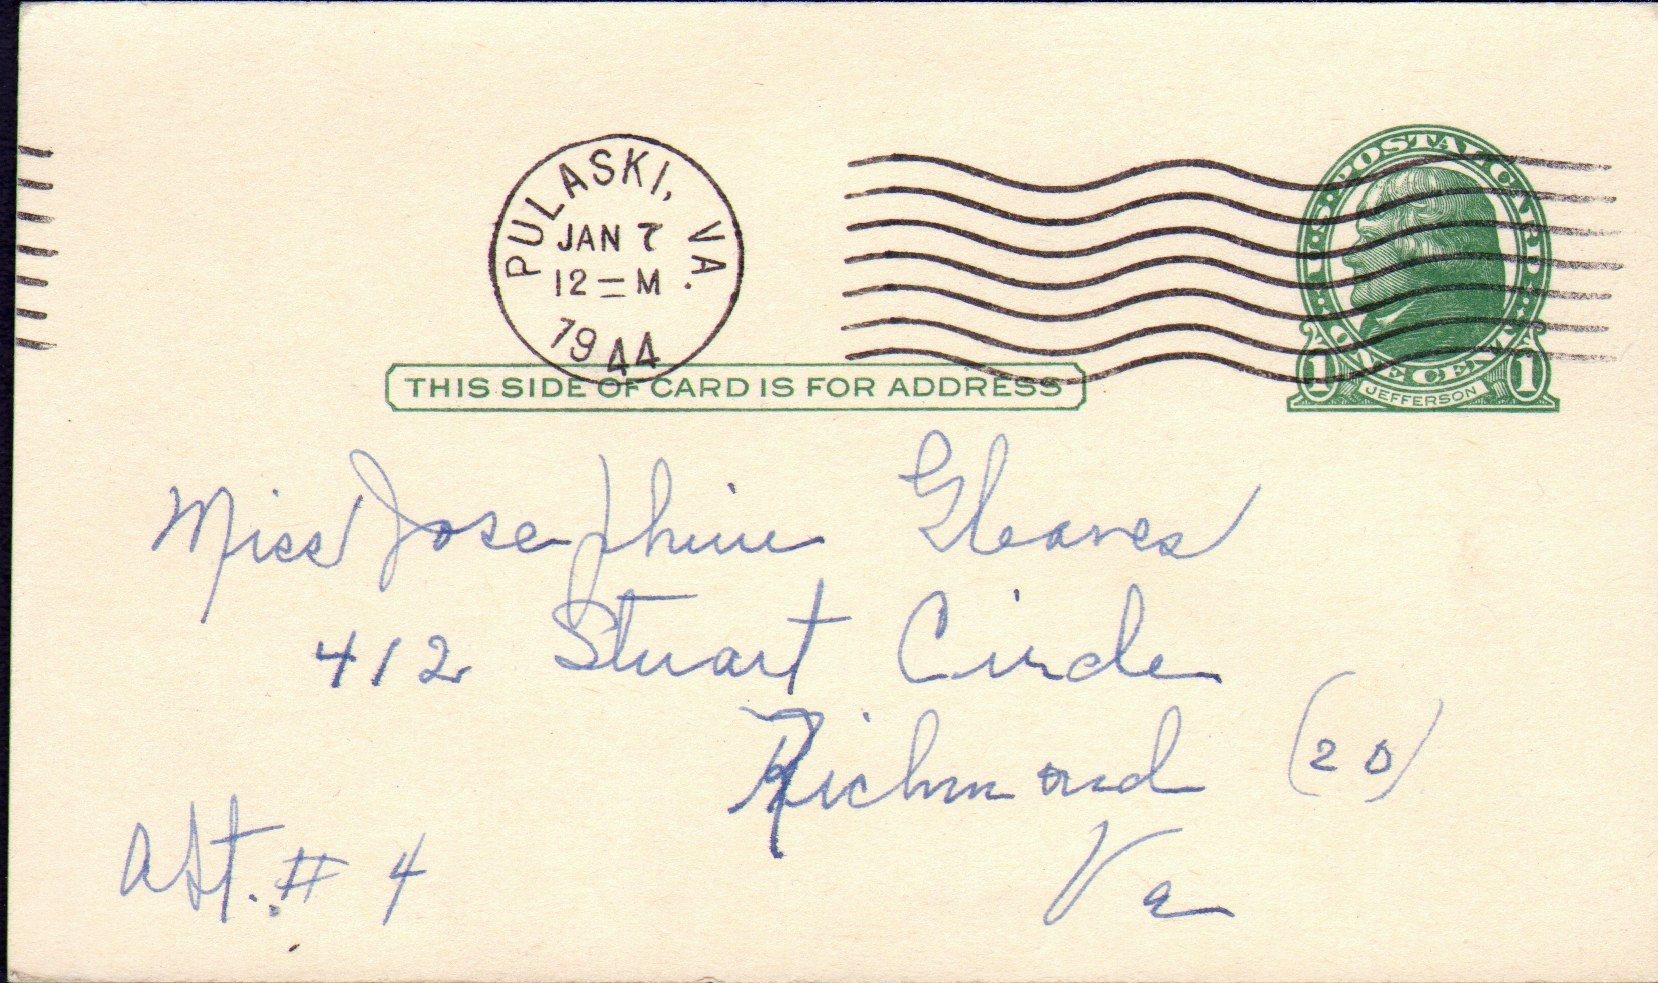 PULASKI, VA.
JAN 7
12 = M
1944
U.S. POSTAL CARD
ONE CENT
1 JEFFERSON 1
THIS SIDE OF CARD IS FOR ADDRESS
Miss Josephine Gleaves
412 Stuart Circle
Richmond (20)
Va
Apt. # 4